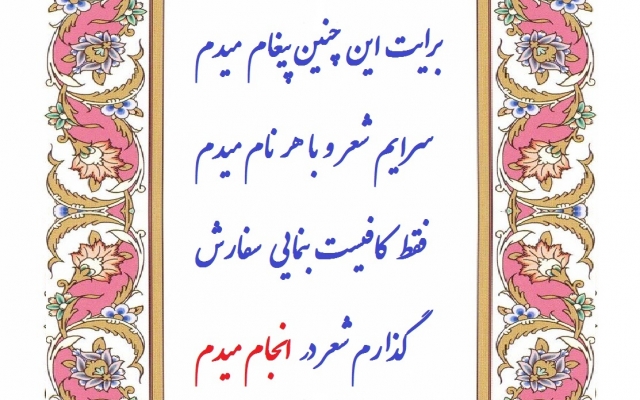 برایت این چنین پیغام میدم
سرایم شعر و با هر نام میدم
فقط کافیست بنمایی سفارش
گذارم شعر در انجام میدم